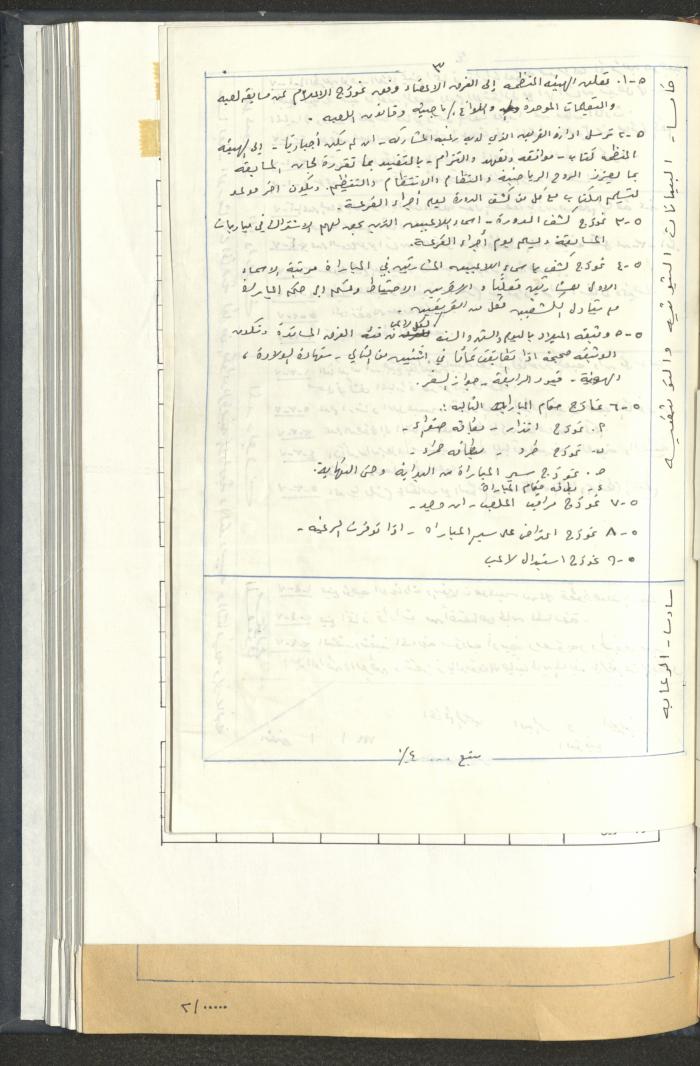 ٣
خامسا - البيانات الثبوتيه والتوثيقيه
٥-١. تعلن الهيئه المنظمه إلى الفرق الاعضاء وفق نموذج الاعلام عن مسابقه لعبه
والتعليمات الموحدة واللوائح الرياضيه وقانون اللعبه .
٥-٢ ترسل ادارة الفريق الذي لديه رغبه المشاركه - ان لم يكن أجباريا - إلى الهيئه
المنظمة كتاب - موافقه وتعهد والتزام - بالتقيد بما تقرره لجان المسابقة
بما يعزز الروح الرياضية والنظام والانتظام والتنظيم . ويكون اخر موعد
لتسليم الكتاب مع كل من كشف الدورة يوم أجراء القرعة .
٥-٣ نموذج كشف الدورة - اسماء اللاعبين الذين يحق لهم الاشتراك في مباريات
المسابقة وتسليم يوم أجراء القرعة .
٥-٤ نموذج كشف باسماء اللاعبين المشاركين في المباراة مرتبة الاسماء
الاولى للمشاركين فعليا و الاخرين الاحتياط وتسلم إلى حكم المباراة
من الفريقين .
٥-٥ وثيقه الميلاد باليوم والشهر والسنه لكل لاعب من فئه الفرق المساندة وتكون
الوثيقه صحيحه اذا تطابقت تماما في اثنتين من التالي - شهادة الولادة ،
الهوية - قيود الرابطة - جواز السفر .
٥-٦ نماذج حكام المباراة التاليه :.
أ. نموذج انذار - بطاقه صفراء -
ب. نموذج طرد - بطاقه حمراء -
ج. نموذج سير المباراة من البداية وحتى النهاية .
د - حكام المباراة
٥-٧ نموذج مراقب الملعب - ان وجد -
٥-٨ نموذج اعتراض على سير المباراه - اذا توفرت الرغبه -
٥-٩ نموذج استبدال لاعب
سادسا - الرعايه
يتبع ..... ٤/١
٢/.....